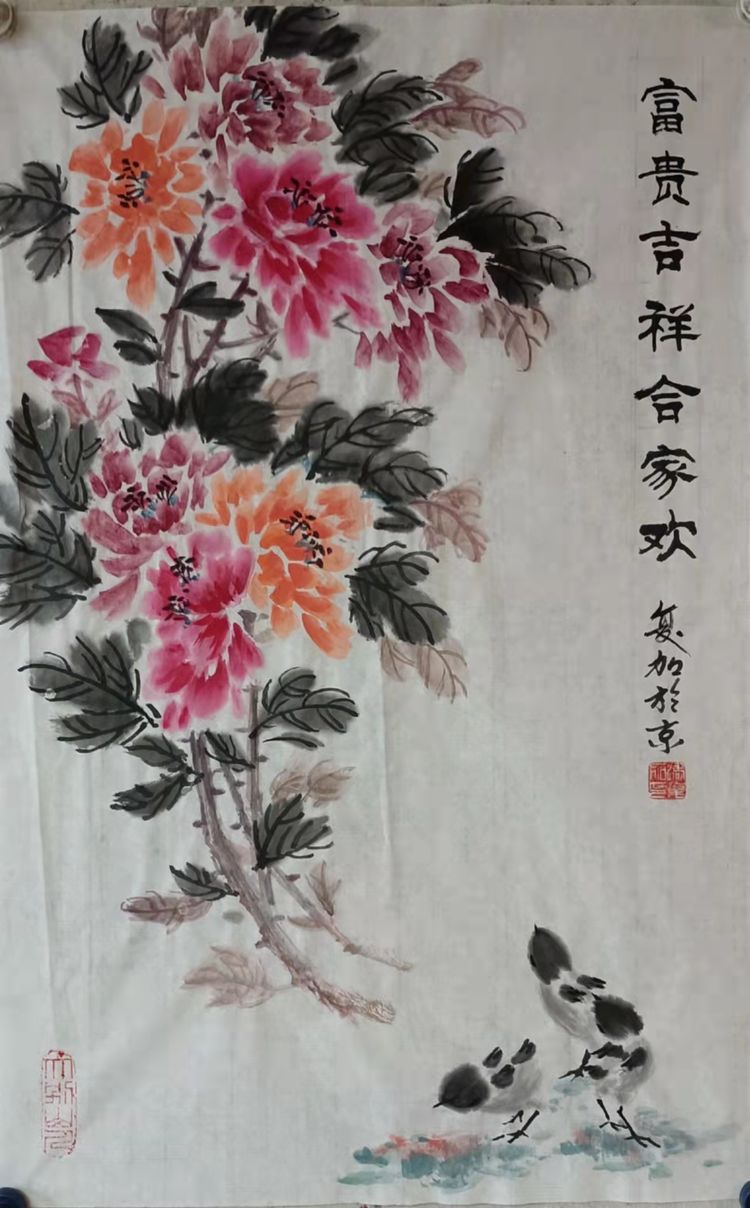 富贵吉祥合家欢
复加於京